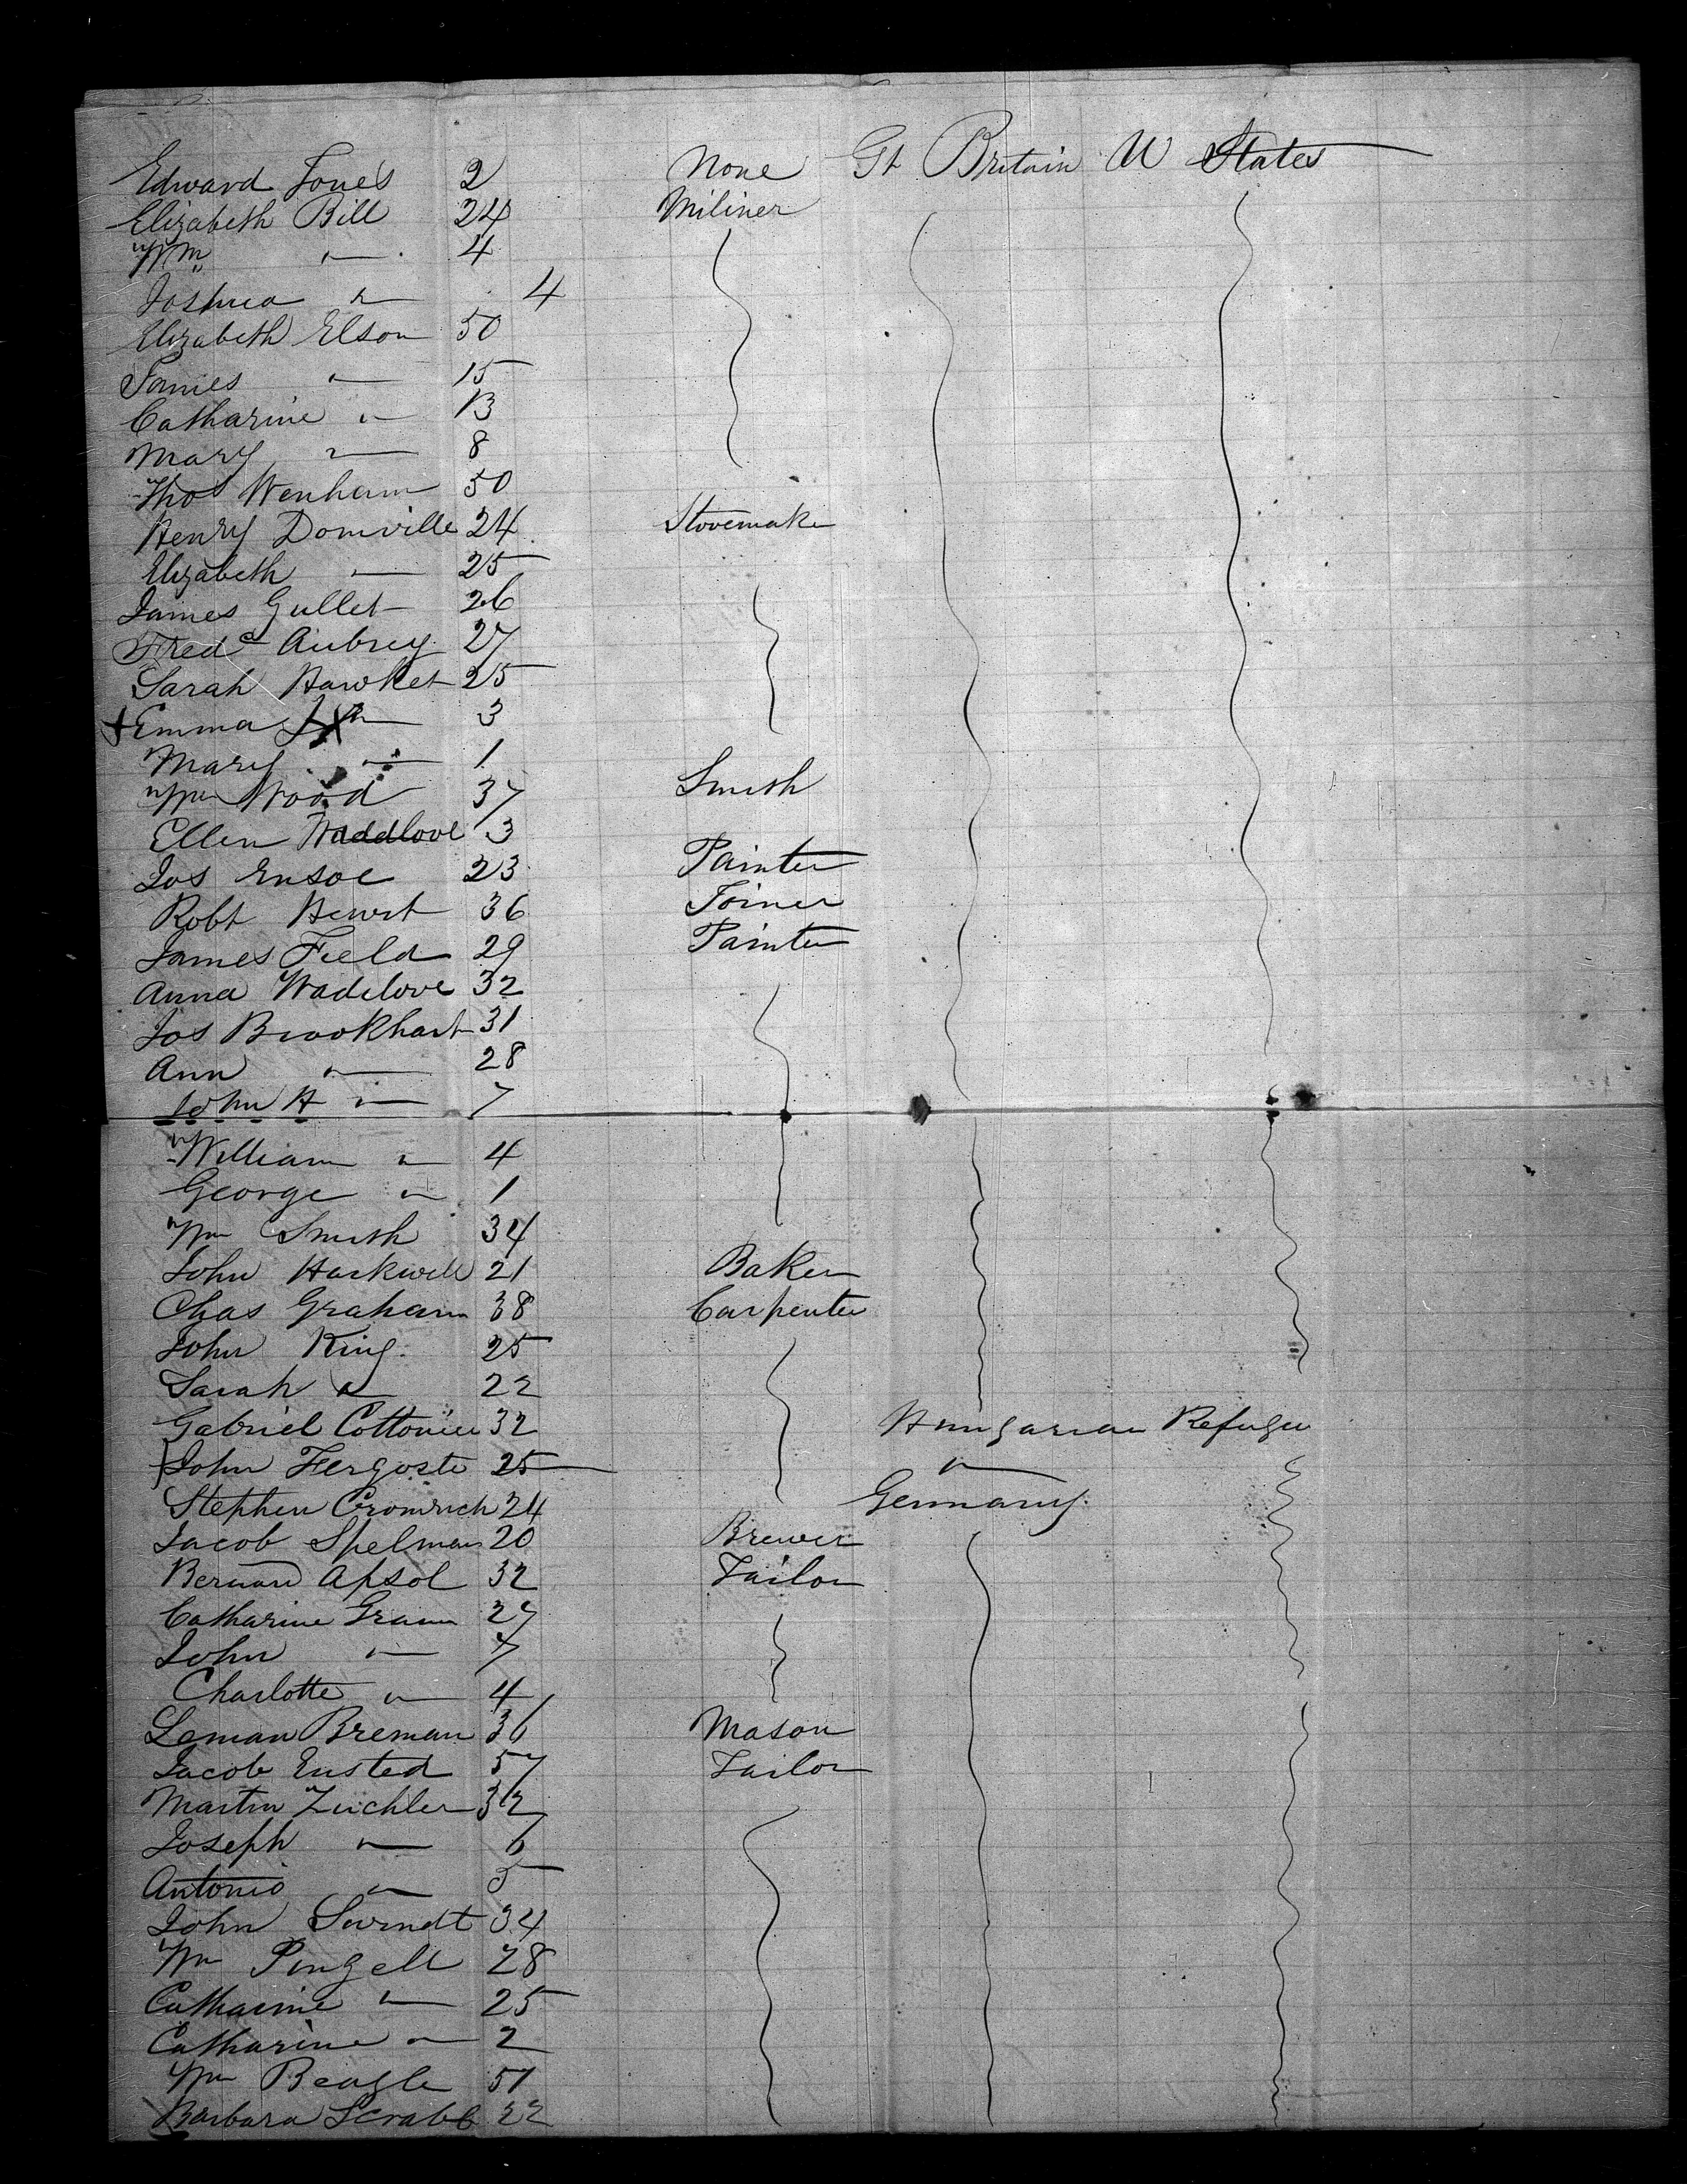 Edward Jones 2 None Gt Britain U States
Elizabeth Bill 24 Miliner
Wm " 4
Joshua " 4
Elizabeth Elson 50
James " 15
Catharine " 13
Mary " 8
Thos Wenham 50
Henry Domville 24 Stovemaker
Elizabeth " 25
James Gullet 26
Fredc Aubrey 27
Sarah Hawket 25
Emma " 3
Mary " 1
Wm Wood 37 Smith
Ellen Waddlove 3
Jos Ensoe 23 Painter
Robt Hewst 36 Joiner
James Field 29 Painter
Anna Wadelove 32
Jos Brookhart 31
Ann " 28
John H " 7
William " 4
George " 1
Wm Smith 34
John Harkwell 21 Baker
Chas Graham 38 Carpenter
John King 25
Sarah " 22
Gabriel 32 Hungarian Refugee
John Fergoste 25 "
Stephen 24 Germany
Jacob Spelman 20 Brewer
Bernard Apsol 32 Tailor
Catharine Gramm 27
John " 7
Charlotte " 4
Leman Breman 36 Mason
Jacob Ensted 57 Tailor
Martin Zuchler 32
Joseph " 6
Antonio " 5
John 34
Wm Pingell 28
Catharine " 25
Catharine " 2
Wm Beagle 51
Barbara Scrabb 22